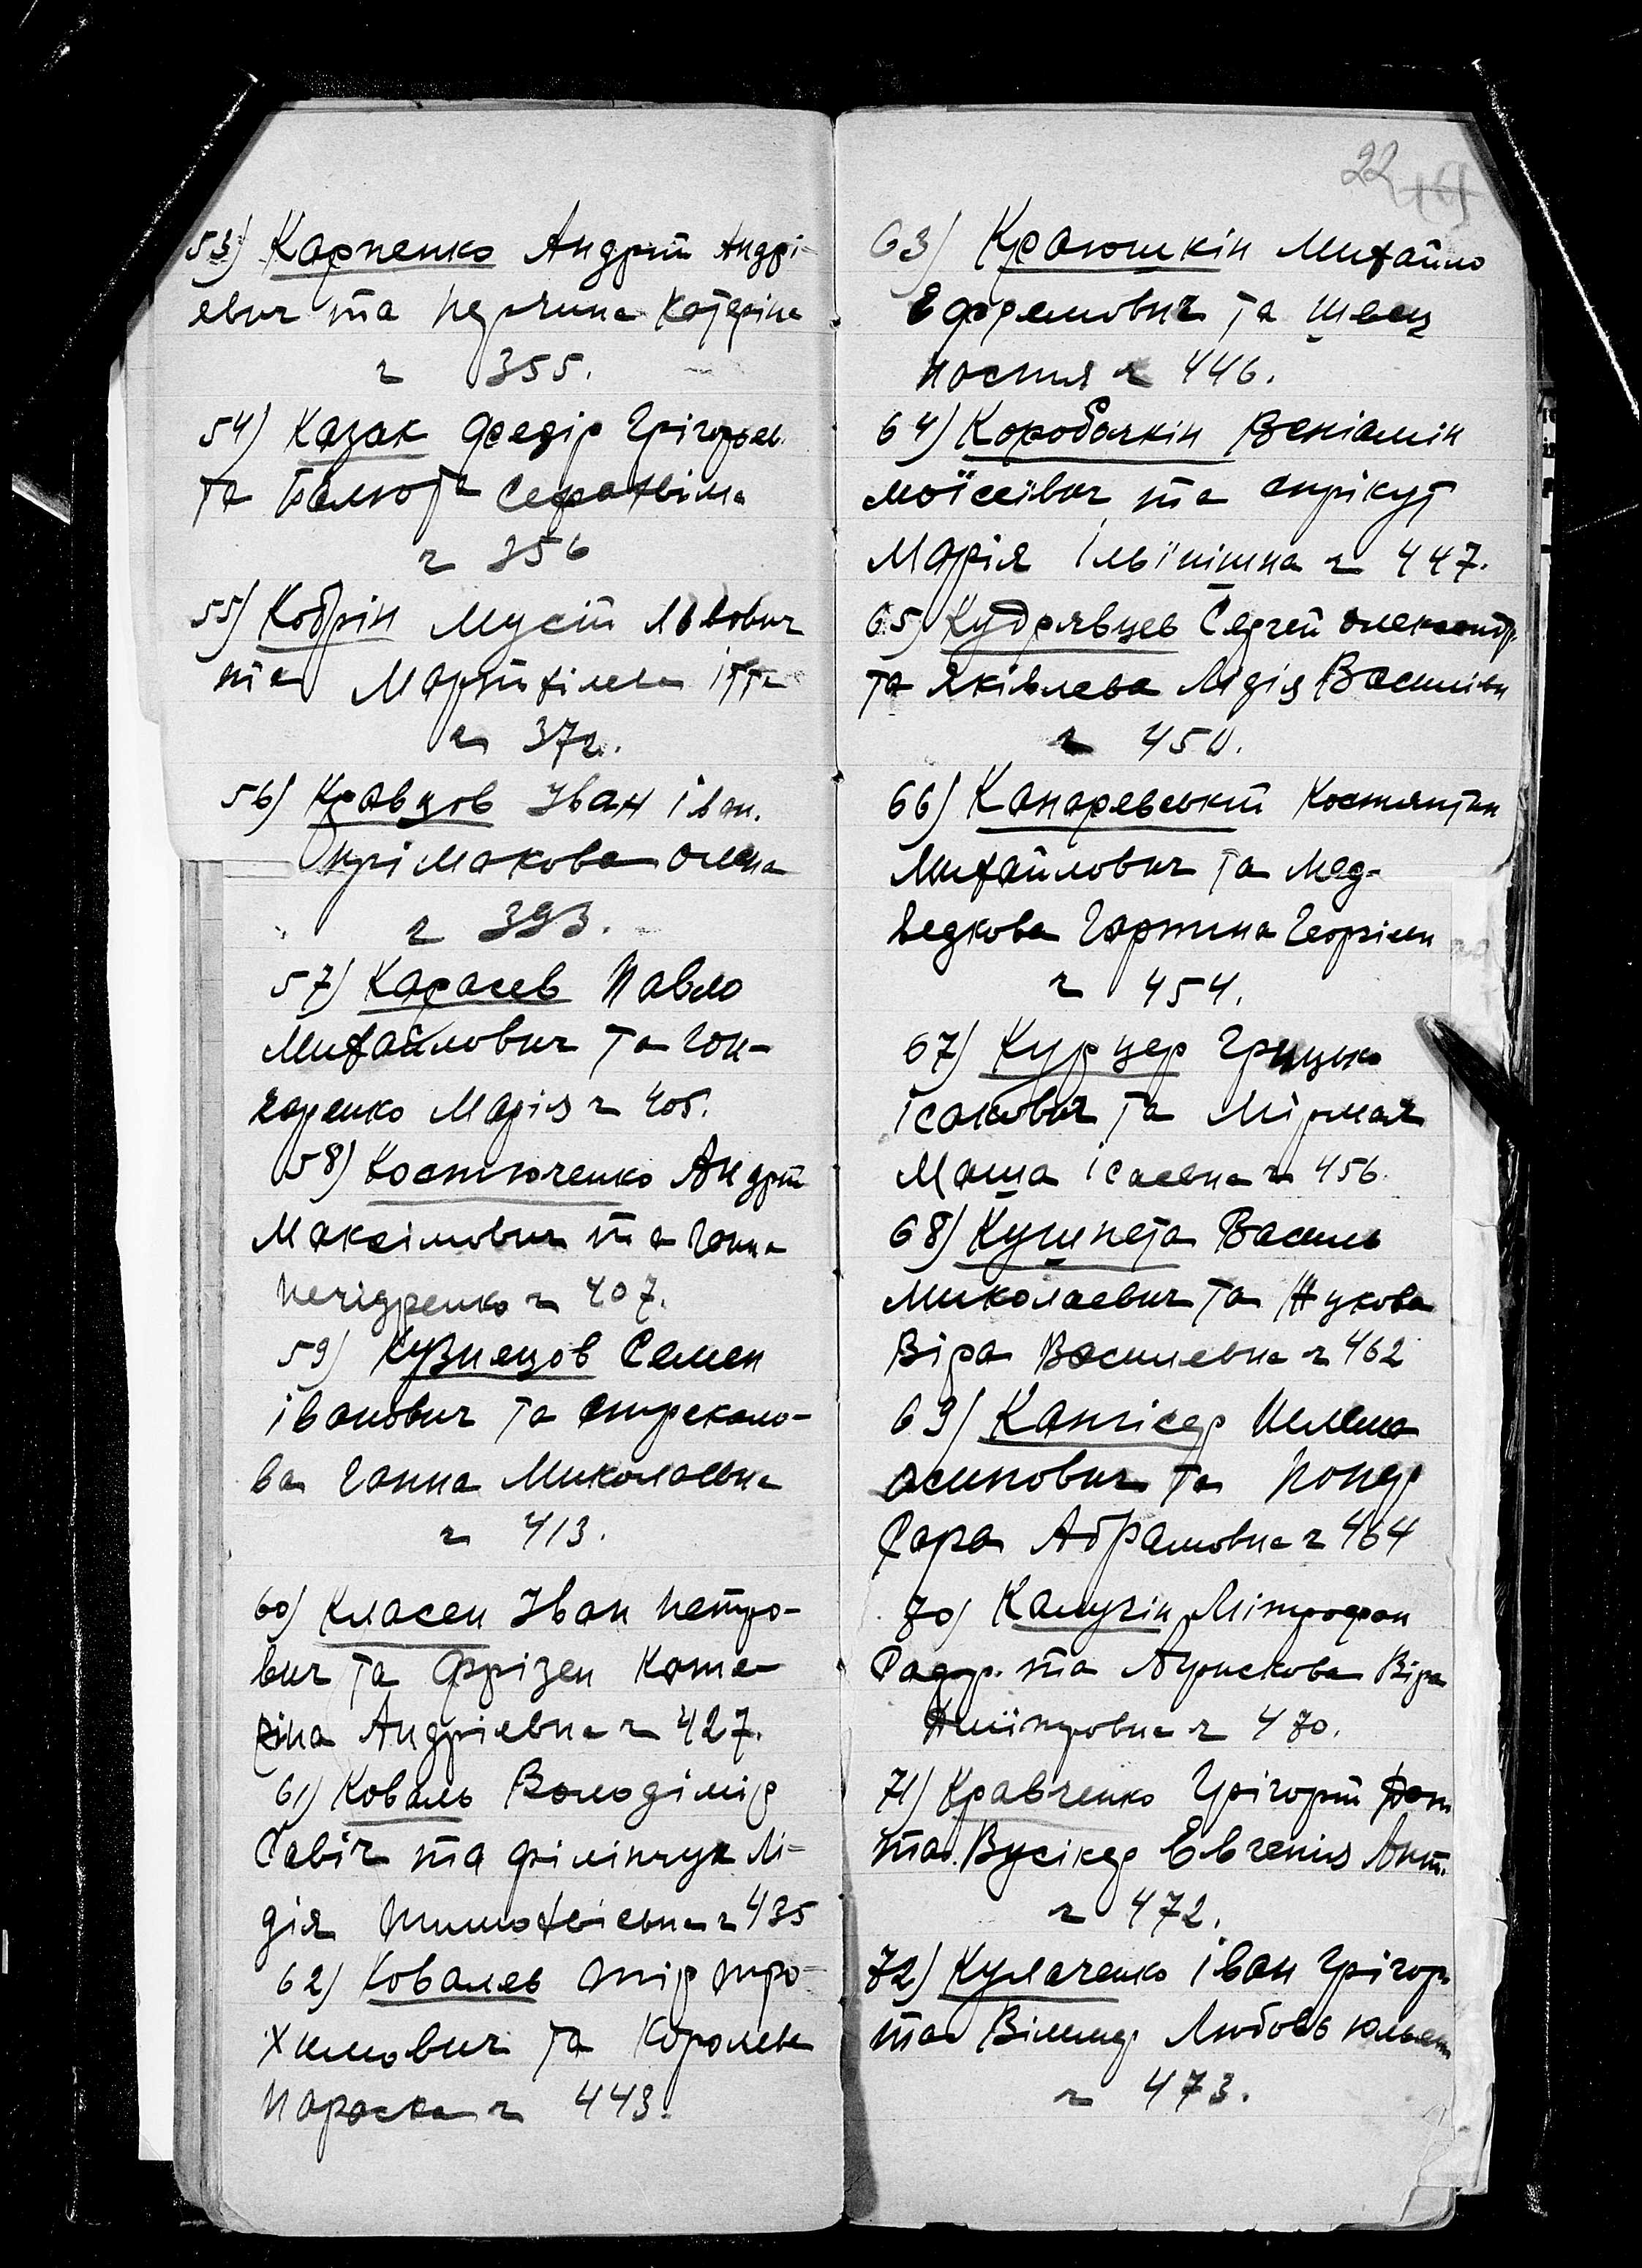 53) Карпенко Андрій Андрі-
евич та Катеріна
ч 355.
54) Казак Федір Грігорьев.
та Балюта Серафіма
ч 356
55) Кобрін Мусій Львович
та Ітта
ч 372.
56) Кравцов Іван Іван.
Прімакова Олена
ч 393.
57) Карасев Павло
Михайлович та Гон-
чаренко Марія ч 405.
58) Костюченко Андрій
Максімович та Ганна
ч 407.
59) Кузнецов Семен
Іванович та Стрекало-
ва Ганна Миколаевна
ч 413.
60) Класен Іван Петро-
вич та Фрізен Кате-
ріна Андріевна ч 427.
61) Коваль Володімір
Савіч та Філіпчук Лі-
дія Тимофіевна ч 435
62) Ковалев Тро-
химович та Королева
Параска ч 443.
22
63) Краюшкін Михайло
Ефремович та Швец
Настя ч 446.
64) Коробочкін Веніамін
Моїсеївич та
Марія Ільїнішна ч 447.
65) Кудрявцев Сергей Олександр.
та Яківлева Лідія Василівн
ч 450.
66) Канаревський Костянтин
Михайлович та Мед-
ведкова Георгіевн
ч 454.
67) Курцер Грицько
Ісакович та
Маша Ісаевна ч 456.
68) Кушпета Василь
Миколаевич та Жукова
Віра Василевна ч 462
69) Шлема
Осипович та
Сара Абрамовна ч 464
70) Калугін Мітрофан
та Віра
Дмитровна ч 470.
71) Кравченко Грігорій
та Евгенія Ант.
ч 472.
72) Кулаченко Іван Грігор.
та Любовь
ч 473.